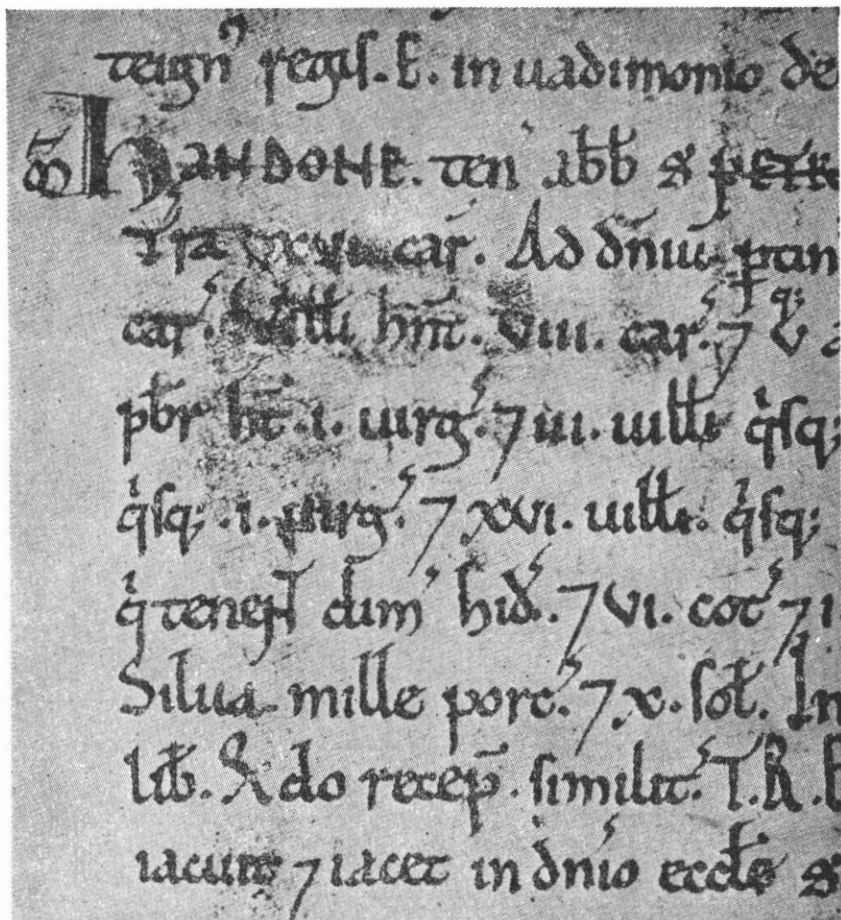 teignꝰ regis. E. in uadimonio de
ᵯ HANDONE. ten̄ abb̄ S PETR
T̄ra xxvi car̄. Ad dn̄iū ptin
car̄. uill̄i hn̄t. viii. car̄. ⁊ v
pb̄r ht̄. i. uirg̕. ⁊ iii. uill̄i q̇sq;
q̇sq; .i. uirg̕. ⁊ xvi. uill̄i. q̇sq;
q̇ tenen̄t dim̕ hid̄. ⁊ vi. cot̕ ⁊ i
Silua mille porc̕. ⁊ x. sol̄. In
lib̄. Q̇do recep̄. similit̕. T. R. E
iacuit ⁊ iacet in dn̄io eccl̄e S